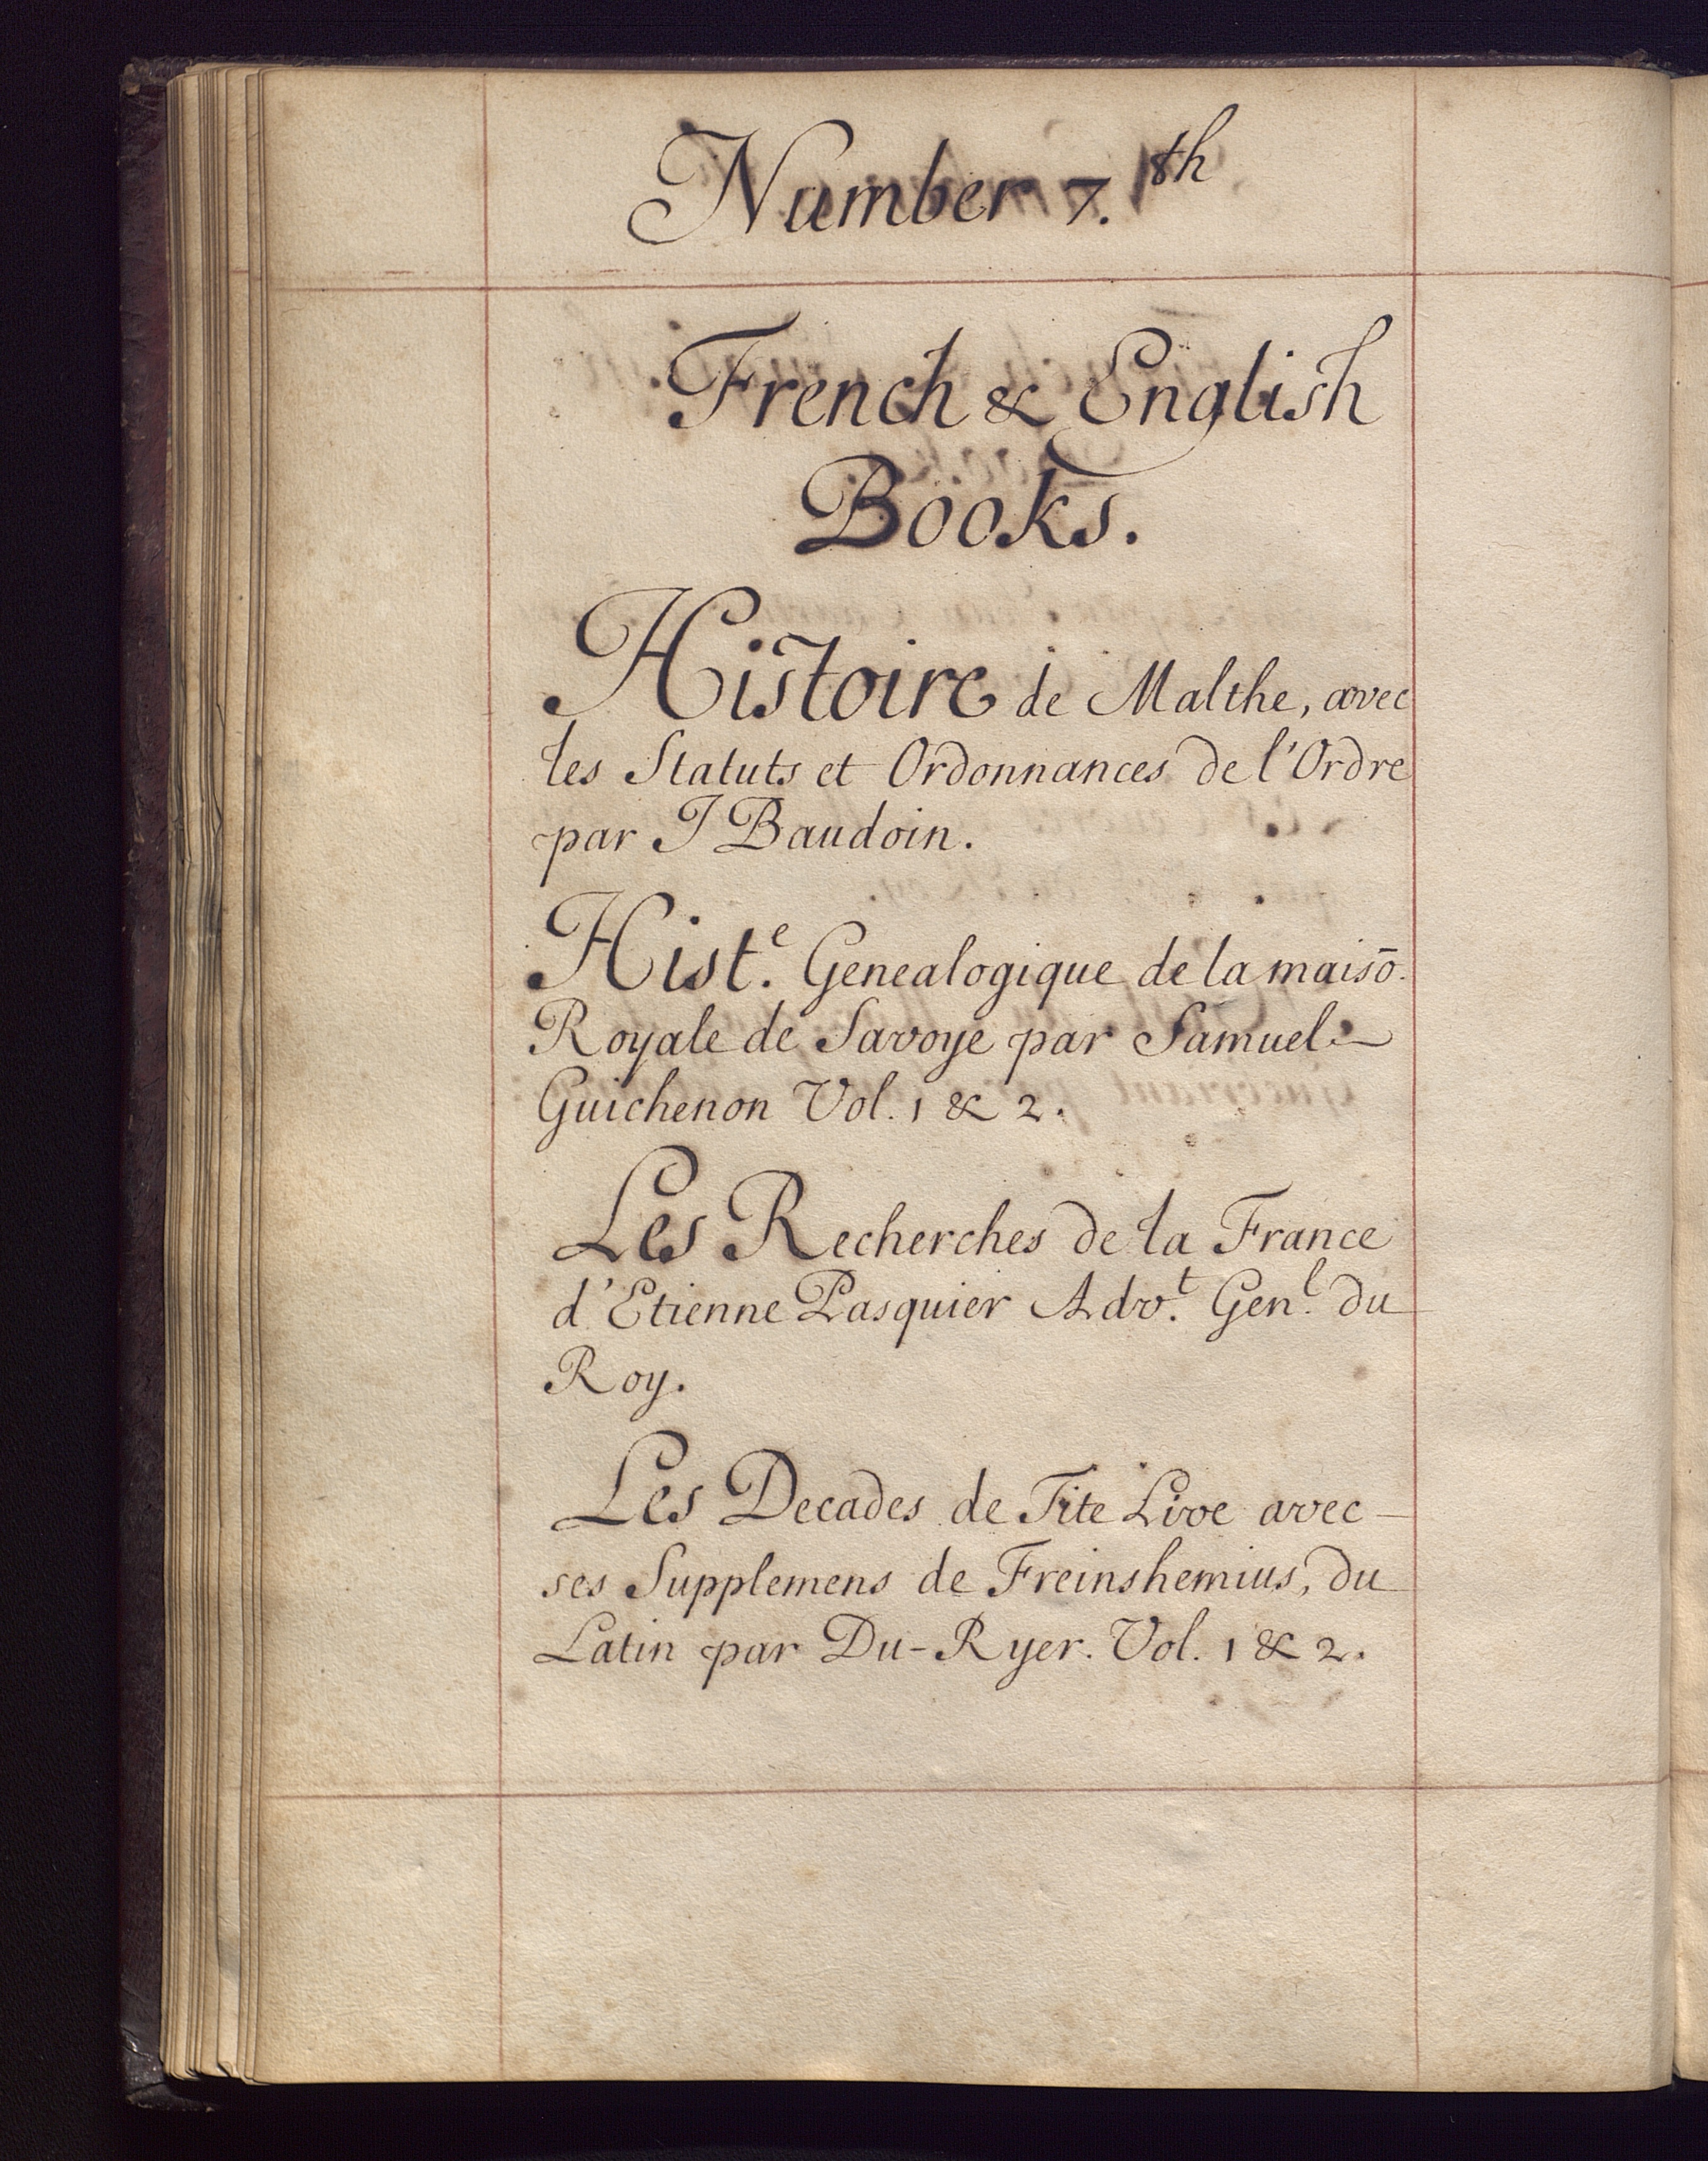 Number 7.th
French & English
Books.
Histoire de Malthe, avec
les Statuts et Ordonnances de l'Ordre
par J Baudoin.
Hist.e Genealogique de la maisō
Royale de Savoye par Samuel
Guichenon Vol. 1 & 2.
Les Recherches de la France
d'Etienne Pasquier Adv.t Gen.l du
Roy.
Les Decades de Tite Live avec
ses Supplemens de Freinshemius, du
Latin par Du-Ryer. Vol. 1 & 2.